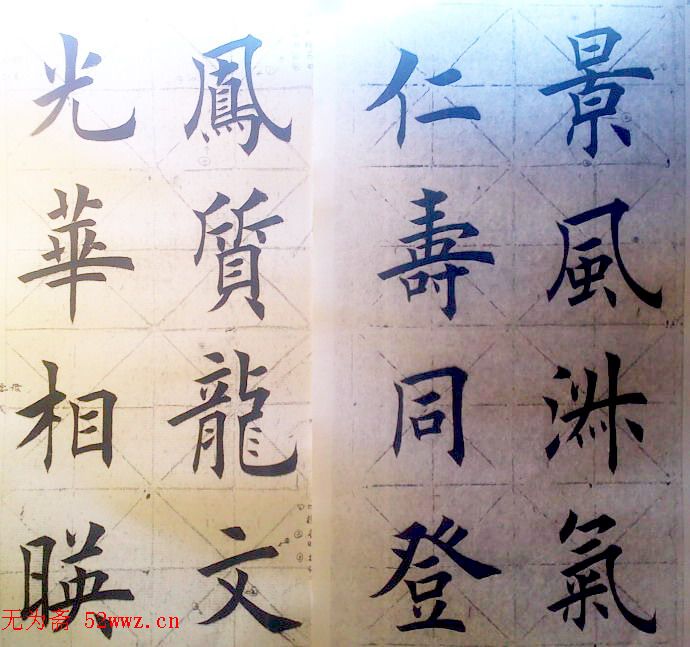 景風淑氣
仁壽同登
鳳質龍文
光華相暎
无为斋 52wwz.cn